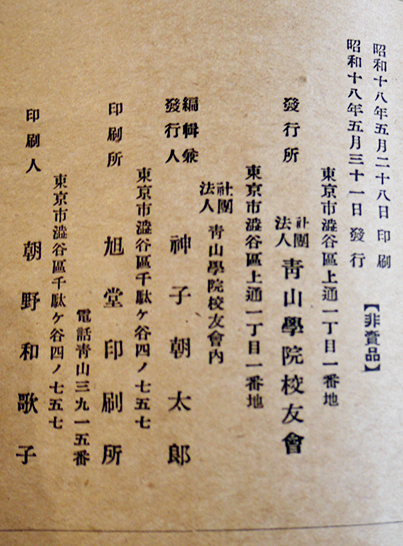 昭和十八年五月二十八日 印刷
昭和十八年五月三十一日 發行
【非賣品】
東京市澁谷區上通一丁目一番地
發行所 社團法人 靑山學院校友會
東京市澁谷區上通一丁目一番地
社團法人 靑山學院校友會內
編輯兼發行人 神子朝太郎
東京市澁谷區千駄ケ谷四ノ七五七
印刷所 旭堂印刷所
電話靑山三九一五番
東京市澁谷區千駄ケ谷四ノ七五七
印刷人 朝野和歌子